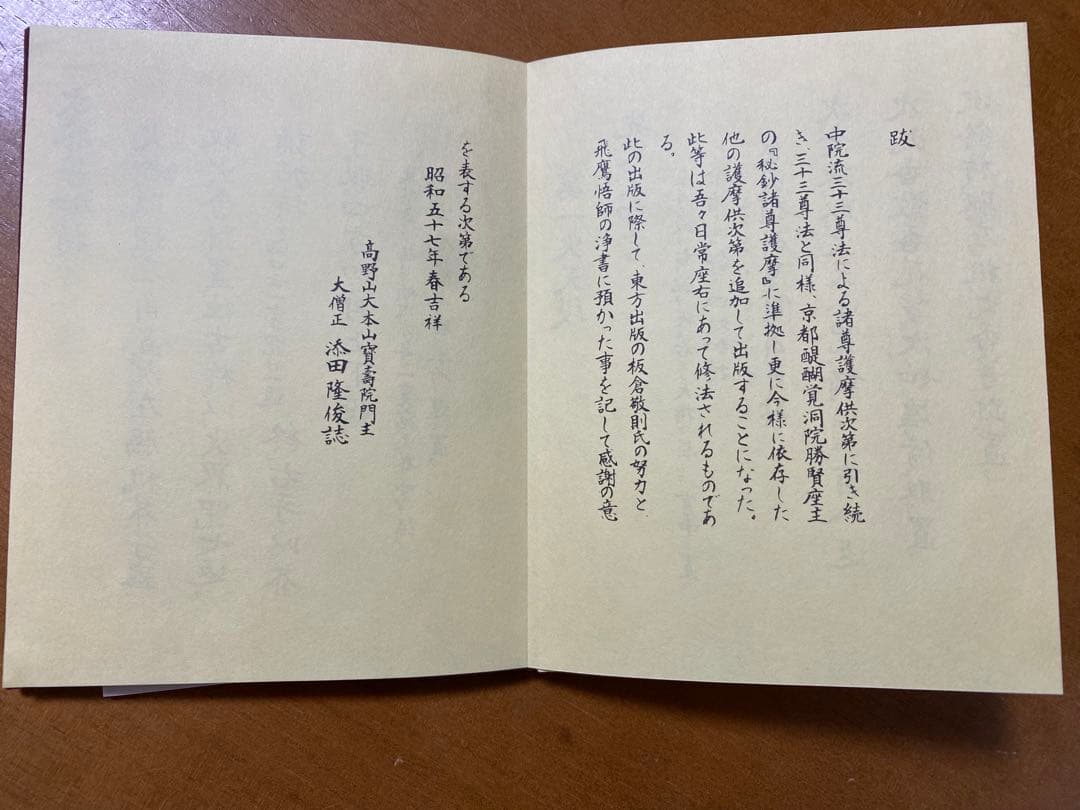 跋
中院流三十三尊法による諸尊護摩供次第に引き続
き、三十三尊法と同様、京都醍醐覚洞院勝賢座主
の『秘鈔諸尊護摩』に準拠し更に今様に依存した
他の護摩供次第を追加して出版することになった。
此等は吾々日常座右にあって修法されるものであ
る。
此の出版に際して、東方出版の板倉敬則氏の努力と
飛鷹悟師の浄書に預かった事を記して感謝の意
を表する次第である
昭和五十七年春吉祥
高野山大本山寶壽院門主
大僧正 添田隆俊誌